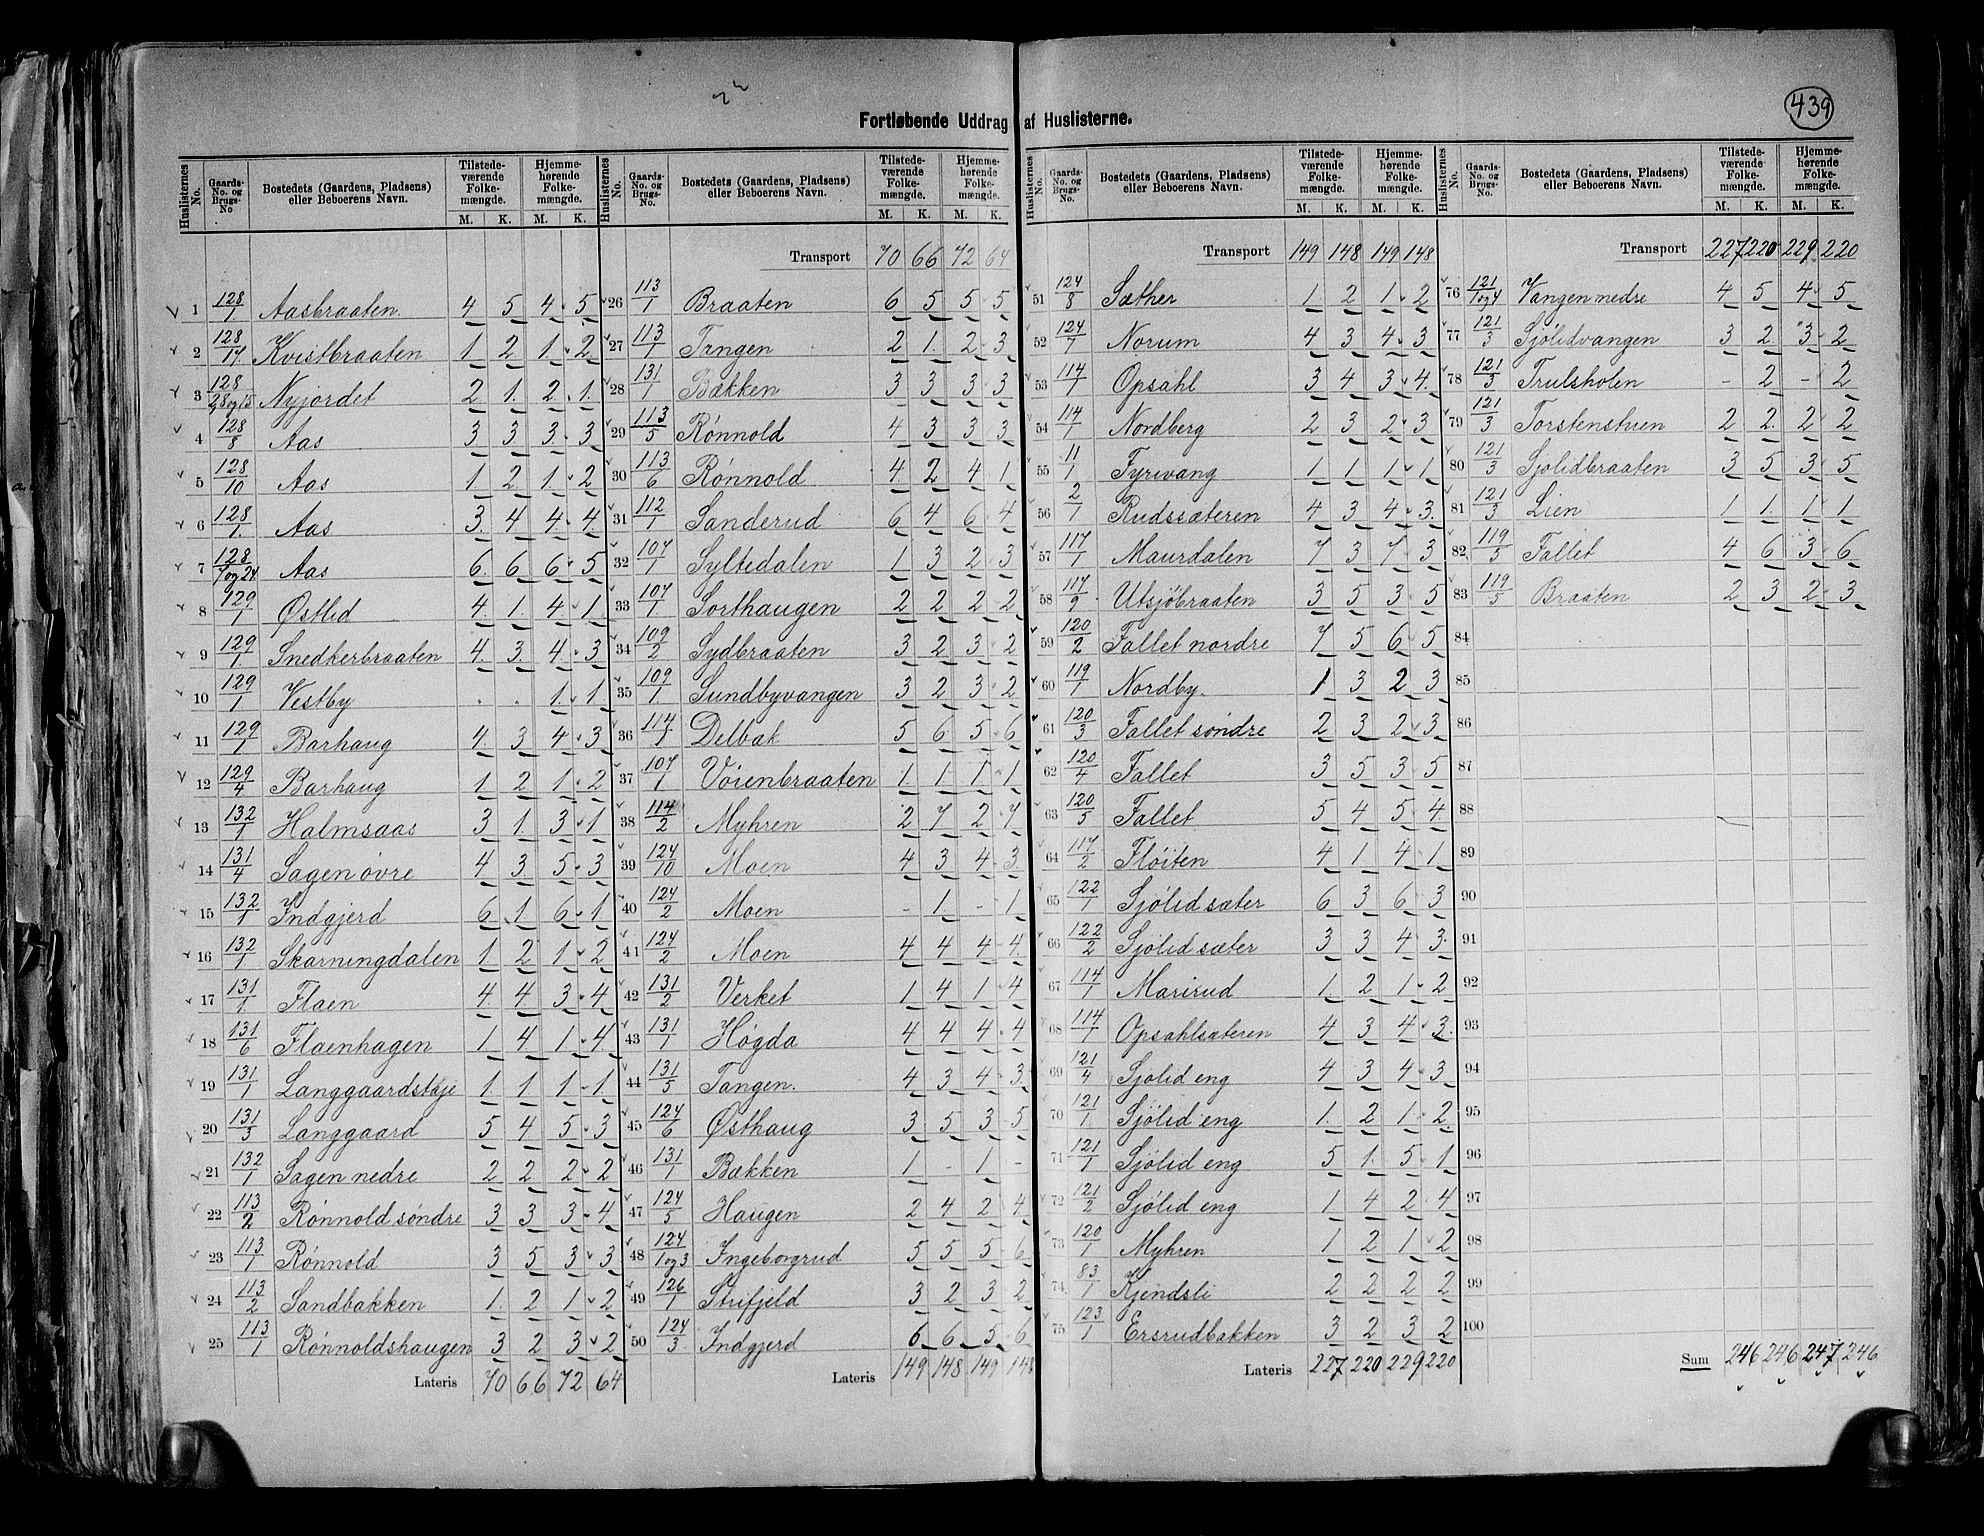 439
Fortløbende Uddrag af Huslisterne.
Huslisternes No. | Gaards-No. og Brugs-No. | Bostedets (Gaardens, Pladsens) eller Beboerens Navn. | Tilstedeværende Folkemængde. M. K. | Hjemmehørende Folkemængde. M. K.
1 128/1 Aasbraaten. 4 5 4 5
2 128/17 Kvistbraaten 1 2 1 2
3 128/28 og 13 Nyjordet 2 1 2 1
4 128/8 Aas 3 3 3 3
5 128/10 Aas 1 2 1 2
6 128/1 Aas 3 4 4 4
7 128/7 og 24 Aas 6 6 6 5
8 129/1 Østlid 4 1 4 1
9 129/1 Snedkerbraaten 4 3 4 3
10 129/1 Vestby . . 1 1
11 129/1 Barhaug 4 3 4 3
12 129/4 Barhaug 1 2 1 2
13 132/1 Halmsaas 3 1 3 1
14 131/4 Sagen øvre 4 3 5 3
15 132/1 Indgjerd 6 1 6 1
16 132/1 Skarningdalen 1 2 1 2
17 131/1 Flaen 4 4 3 4
18 131/6 Flaenhagen 1 4 1 4
19 131/1 Langgaardstøje 1 1 1 1
20 131/3 Langgaard 5 4 5 3
21 132/1 Sagen nedre 2 2 2 2
22 113/2 Rønnold søndre 3 3 3 4
23 113/1 Rønnold 3 5 3 3
24 113/2 Sandbakken 1 2 1 2
25 113/1 Rønnoldshaugen 3 2 3 2
Lateris 70 66 72 64
Huslisternes No. | Gaards-No. og Brugs-No. | Bostedets (Gaardens, Pladsens) eller Beboerens Navn. | Tilstedeværende Folkemængde. M. K. | Hjemmehørende Folkemængde. M. K.
Transport 70 66 72 64
26 113/1 Braaten 6 5 5 5
27 113/1 Tangen 2 1 2 3
28 131/1 Bækken 3 3 3 3
29 113/5 Rønnold 4 3 3 3
30 113/6 Rønnold 4 2 4 1
31 112/1 Sanderud 6 4 6 4
32 107/1 Syltedalen 1 3 2 3
33 107/1 Sorthaugen 2 2 2 2
34 109/2 Sydbraaten 3 2 3 2
35 109/1 Sundbyvangen 3 2 3 2
36 114/1 Delbak 5 6 5 6
37 107/1 Voienbraaten 1 1 1 1
38 114/2 Myhren 2 7 2 7
39 124/10 Moen 4 3 4 3
40 124/2 Moen - 1 - 1
41 124/2 Moen 4 4 4 4
42 131/2 Verket 1 4 1 4
43 131/1 Høgda 4 4 4 4
44 131/5 Tangen. 4 3 4 3
45 124/6 Østhaug 3 5 3 5
46 131/1 Bækken 1 - 1 -
47 124/5 Haugen 2 4 2 4
48 124/1 og 3 Ingeborgrud 5 5 5 6
49 126/1 Stufjeld 3 2 3 2
50 124/3 Indgjerd 6 6 5 6
Lateris 149 148 149 148
Huslisternes No. | Gaards-No. og Brugs-No. | Bostedets (Gaardens, Pladsens) eller Beboerens Navn. | Tilstedeværende Folkemængde. M. K. | Hjemmehørende Folkemængde. M. K.
Transport 149 148 149 148
51 124/8 Sæther 1 2 1 2
52 124/7 Norum 4 3 4 3
53 114/1 Opsahl 3 4 3 4
54 114/1 Nordberg 2 3 2 3
55 11/1 Fyrivang 1 1 1 1
56 2/1 Rudssæteren 4 3 4 3
57 117/1 Maurdalen 7 3 7 3
58 117/9 Utsjöbraaten 3 5 3 5
59 120/2 Fallet nordre 7 5 6 5
60 119/1 Nordby 1 3 2 3
61 120/3 Fallet søndre 2 3 2 3
62 120/4 Fallet 3 5 3 5
63 120/5 Fallet 5 4 5 4
64 117/2 Fløiten 4 1 4 1
65 122/1 Sjölid sæter 6 3 6 3
66 122/2 Sjölid sæter 3 3 4 3
67 114/1 Marirud 1 2 1 2
68 114/1 Opsahlsæteren 4 3 4 3
69 121/4 Sjölid eng 4 3 4 3
70 121/1 Sjölid eng 1 2 1 2
71 121/1 Sjölid eng 5 1 5 1
72 121/2 Sjölid eng 1 4 2 4
73 120/1 Myhren 1 2 1 2
74 83/1 Kjendsli 2 2 2 2
75 123/1 Ersrudbakken 3 2 3 2
Lateris 227 220 229 220
Huslisternes No. | Gaards-No. og Brugs-No. | Bostedets (Gaardens, Pladsens) eller Beboerens Navn. | Tilstedeværende Folkemængde. M. K. | Hjemmehørende Folkemængde. M. K.
Transport 227 220 229 220
76 121/1 og 4 Vangen nedre 4 5 4 5
77 121/3 Sjölidvangen 3 2 3 2
78 121/3 Trulsholen - 2 - 2
79 121/3 Torstenstuen 2 2 2 2
80 121/3 Sjölidbraaten 3 5 3 5
81 121/3 Lien 1 1 1 1
82 119/5 Fallet 4 6 3 6
83 119/5 Braaten 2 3 2 3
84
85
86
87
88
89
90
91
92
93
94
95
96
97
98
99
100
Sum 246 246 247 246